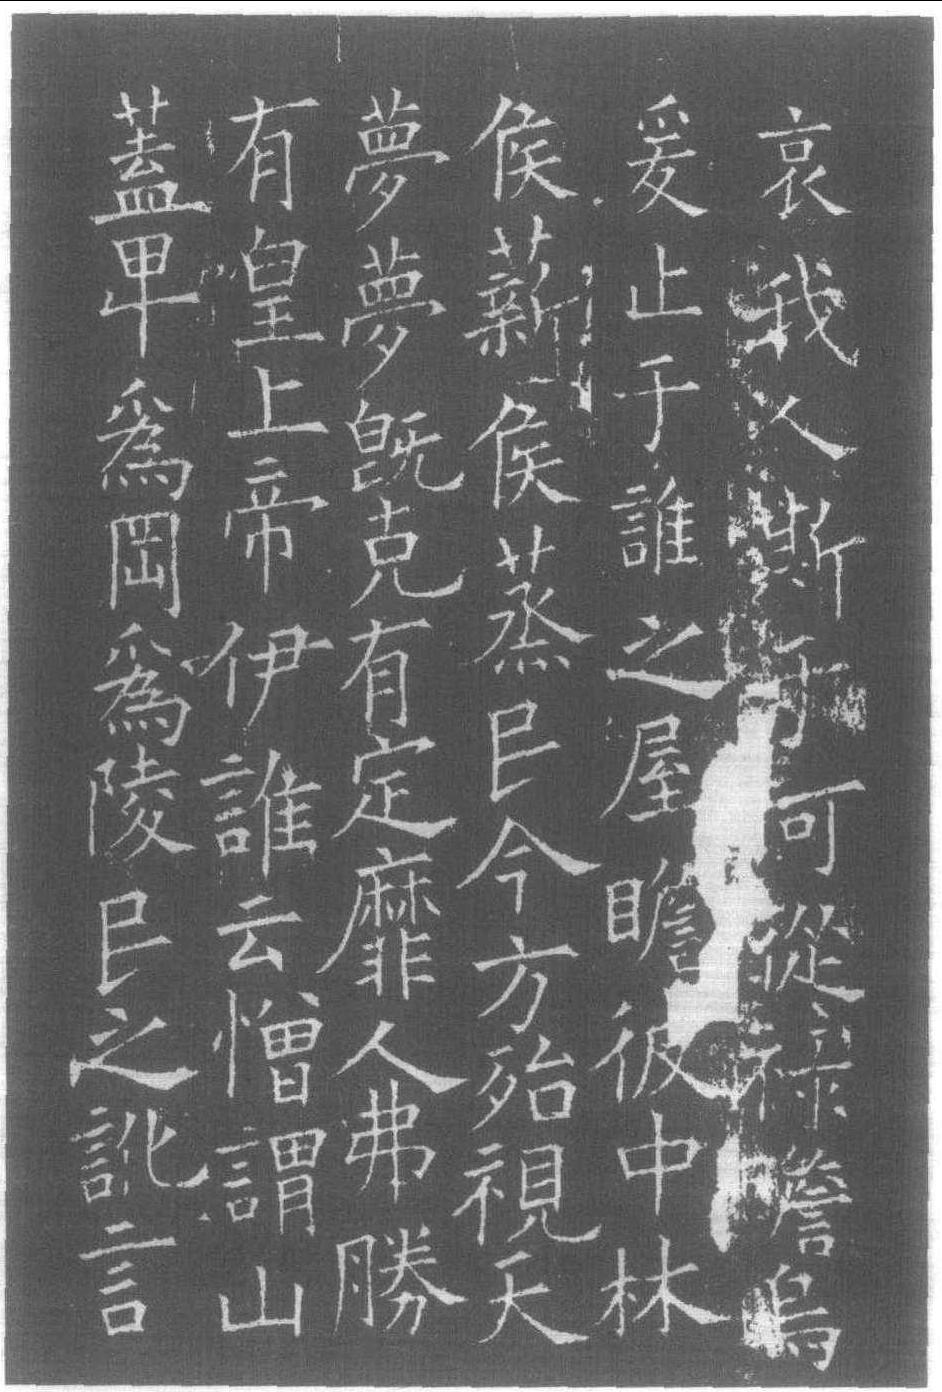 哀我人斯于何從祿瞻烏
爰止于誰之屋瞻彼中林
侯薪侯蒸民今方殆視天
夢夢旣克有定靡人弗勝
有皇上帝伊誰云憎謂山
蓋卑爲岡爲陵民之訛言